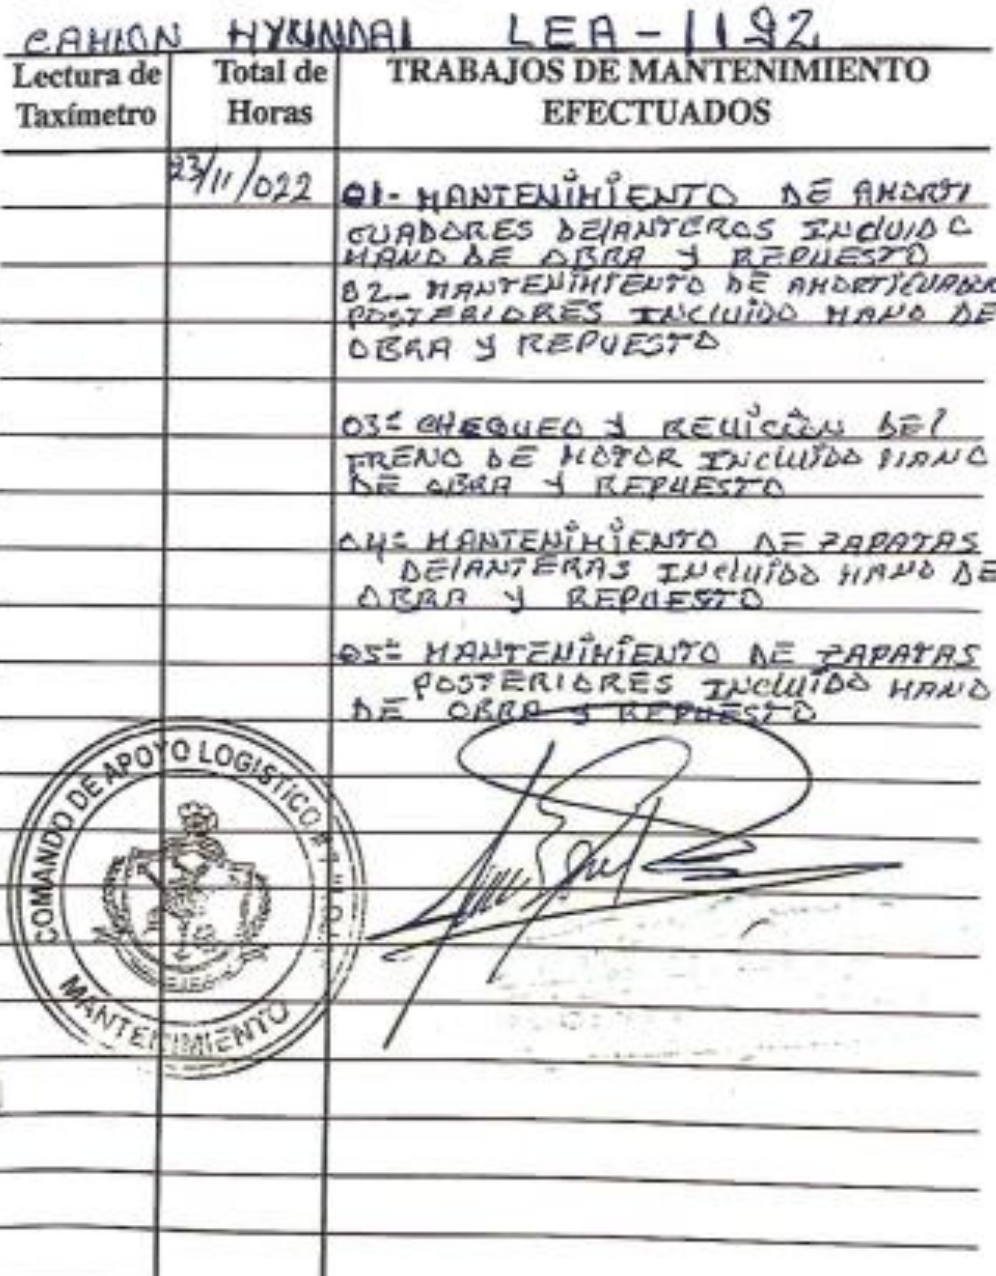 CAMION HYUNDAI LEA-1192
Lectura de Taxímetro
Total de Horas
TRABAJOS DE MANTENIMIENTO EFECTUADOS
23/11/022
01- MANTENIMIENTO DE AMORTI
GUADORES DELANTEROS INCLUIDO
MANO DE OBRA Y REPUESTO
02- MANTENIMIENTO DE AMORTIGUADOR
POSTERIORES INCLUIDO MANO DE
OBRA Y REPUESTO
03- CHEQUEO Y REUICION DEL
FRENO DE MOTOR INCLUIDO MANO
DE OBRA Y REPUESTO
04- MANTENIMIENTO DE ZAPATAS
DELANTERAS INCLUIDO MANO DE
OBRA Y REPUESTO
05- MANTENIMIENTO DE ZAPATAS
POSTERIORES INCLUIDO MANO
DE OBRA Y REPUESTO
COMANDO DE APOYO LOGISTICO
MANTENIMIENTO